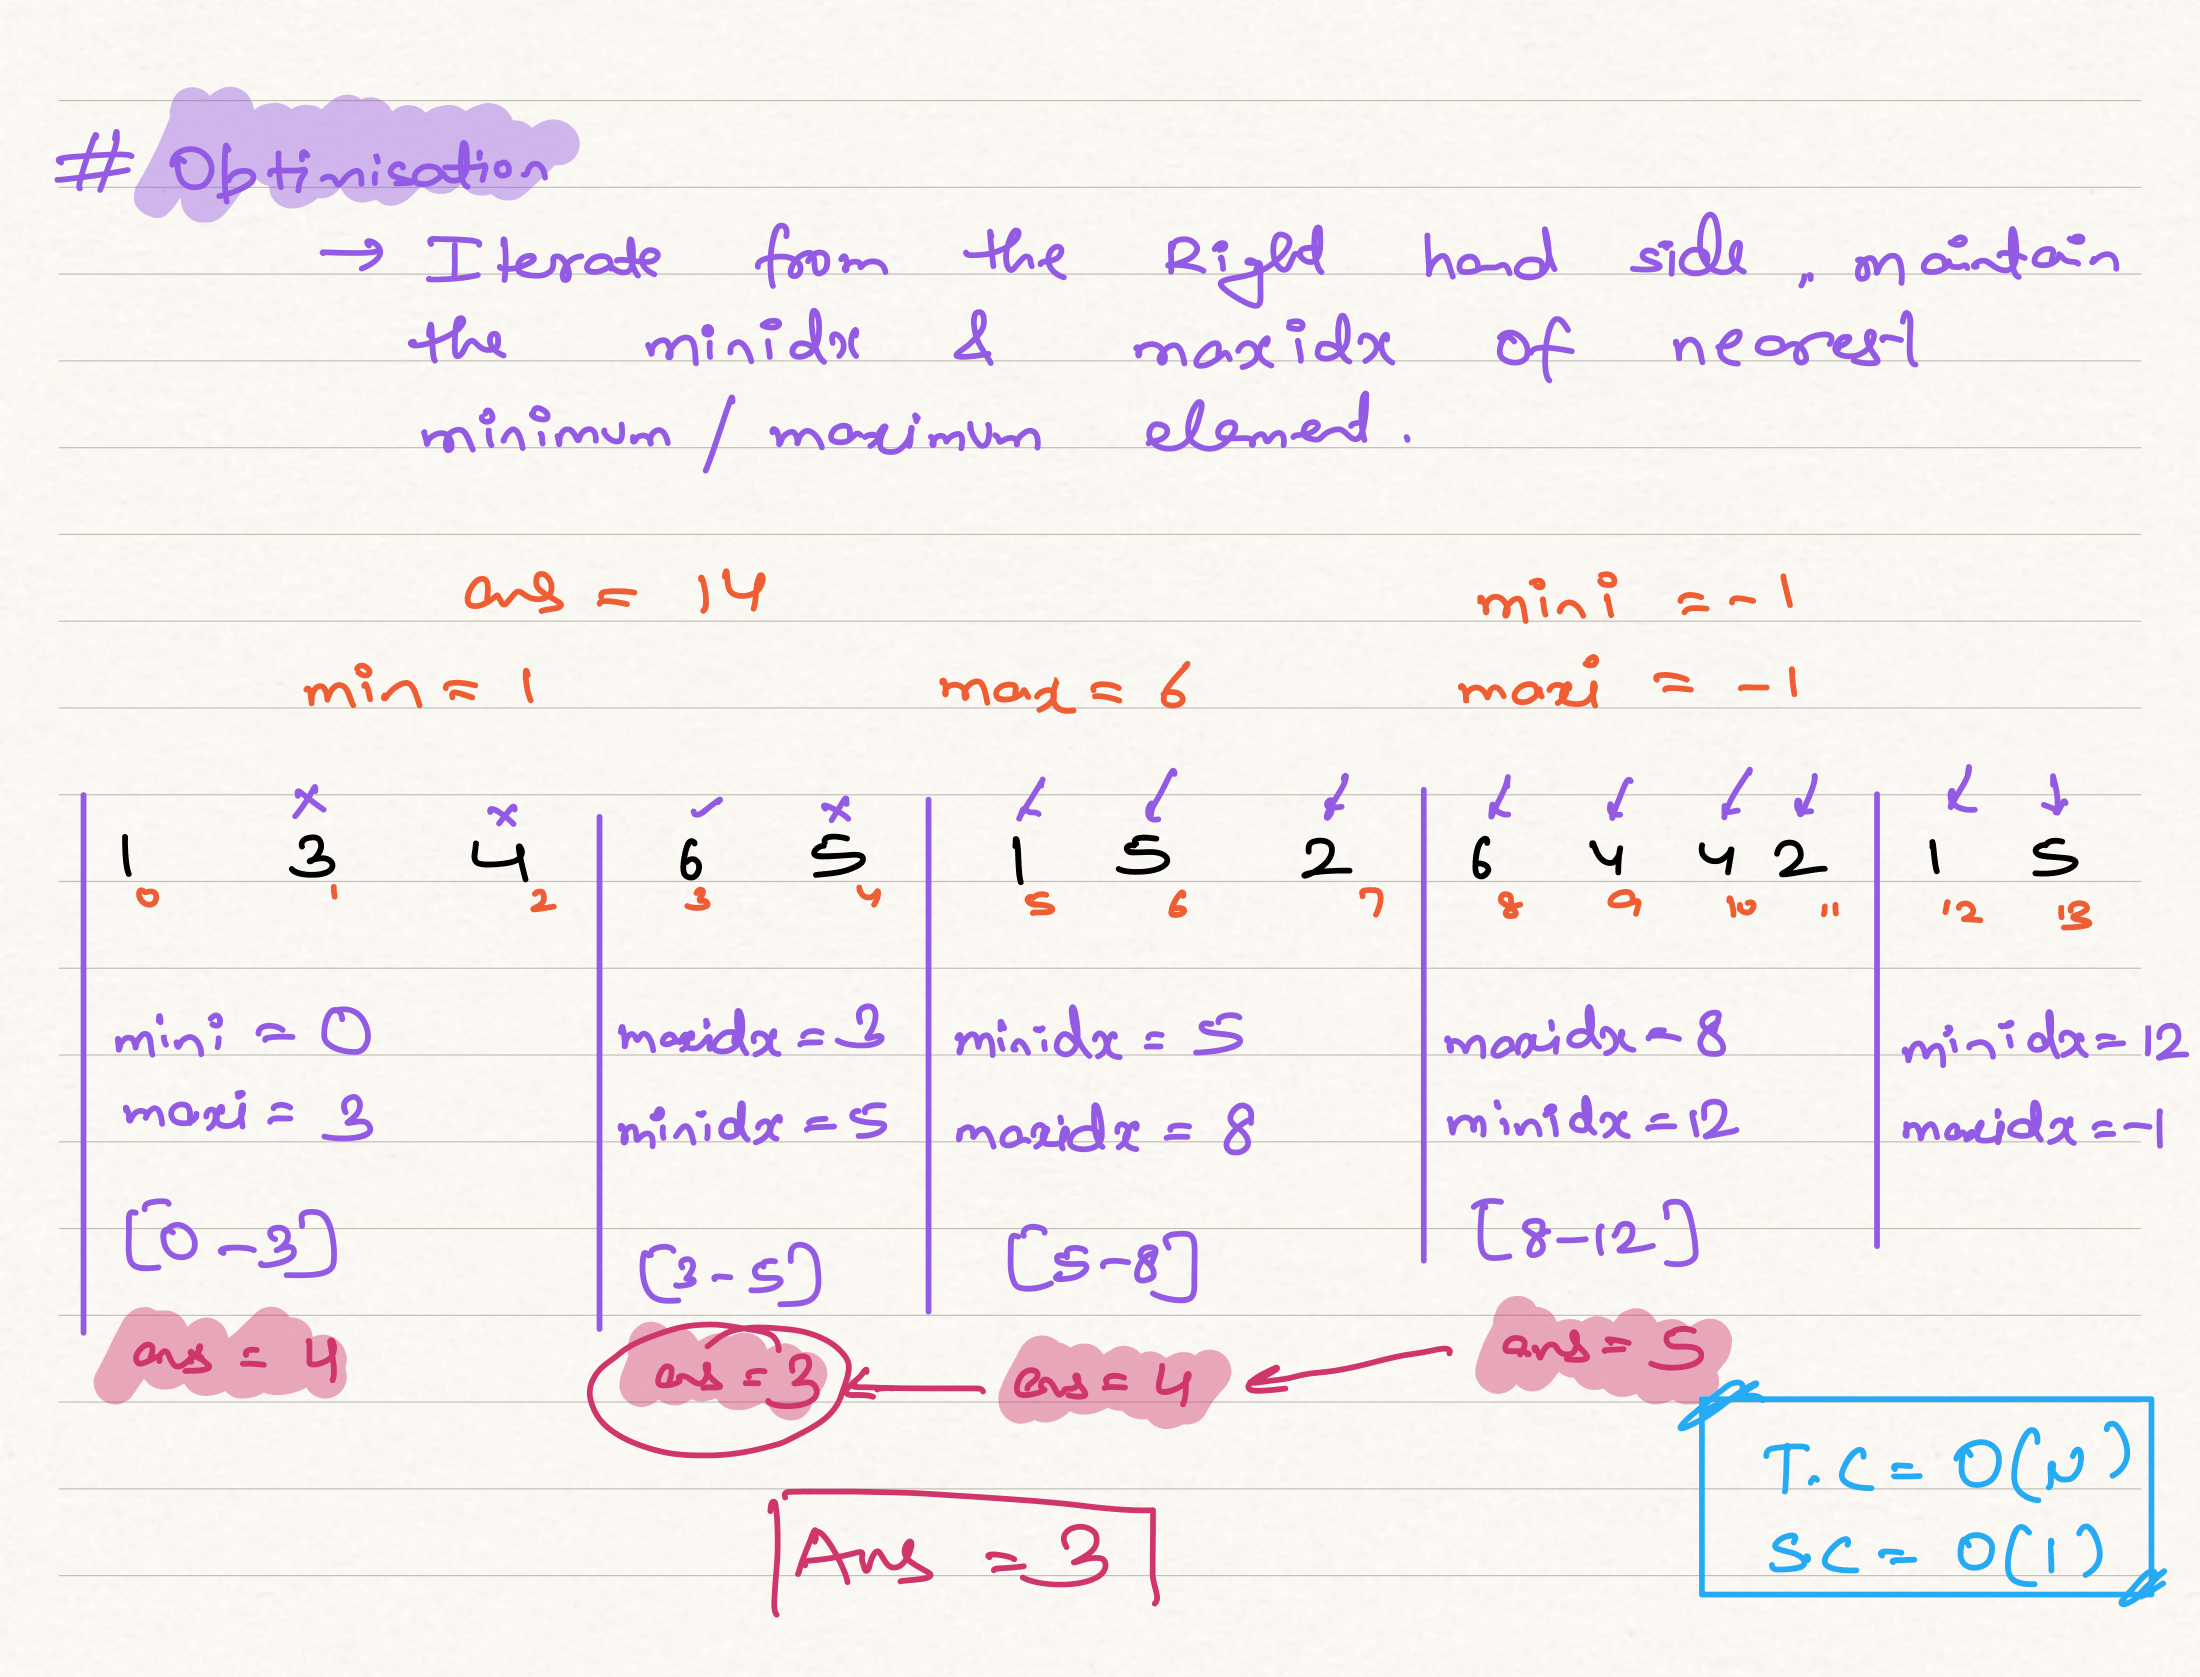 # Optimisation
→ Iterate from the Right hand side, maintain
the minidx & maxidx of nearest
minimum / maximum element.
ans = 14 mini = -1
min = 1 max = 6 maxi = -1
1 3 4 6 5 1 5 2 6 4 4 2 1 5
0 1 2 3 4 5 6 7 8 9 10 11 12 13
mini = 0 maxidx = 3 minidx = 5 maxidx = 8 minidx = 12
maxi = 3 minidx = 5 maxidx = 8 minidx = 12 maxidx = -1
[0-3] [3-5] [5-8] [8-12]
ans = 4 ans = 3 ← ans = 4 ← ans = 5
T.C = O(N)
Ans = 3 SC = O(1)